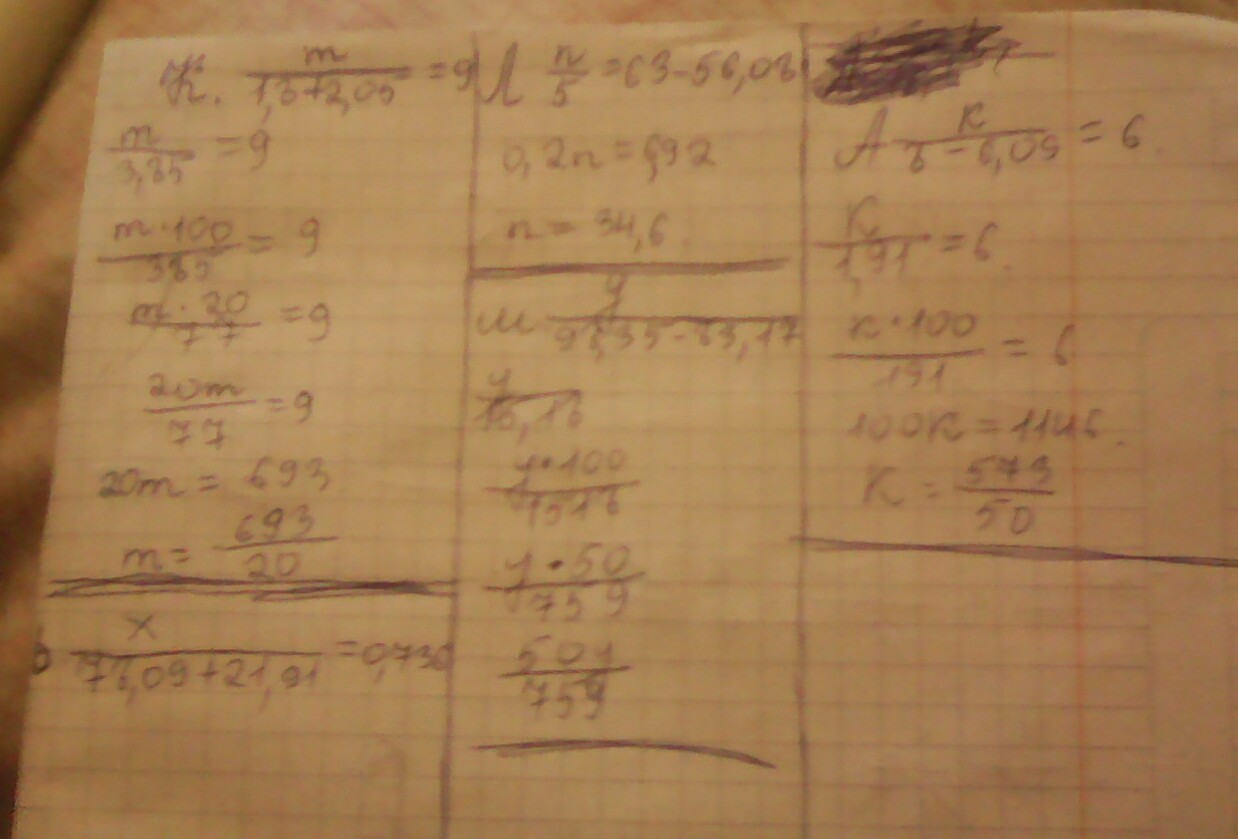 К. m/(1,8+2,05) = 9
m/3,85 = 9
m·100/385 = 9
m·20/77 = 9
20m/77 = 9
20m = 693
m = 693/20
x/(78,09+21,91) = 0,736
Л n/5 = 63-56,08
0,2n = 6,92
n = 34,6.
М y/(98,35-83,17
y/15,18
y·100/1518
y·50/759
50y/759
А к/(8-6,09) = 6.
К/1,91 = 6.
к·100/191 = 6
100К = 1146.
К = 573/50